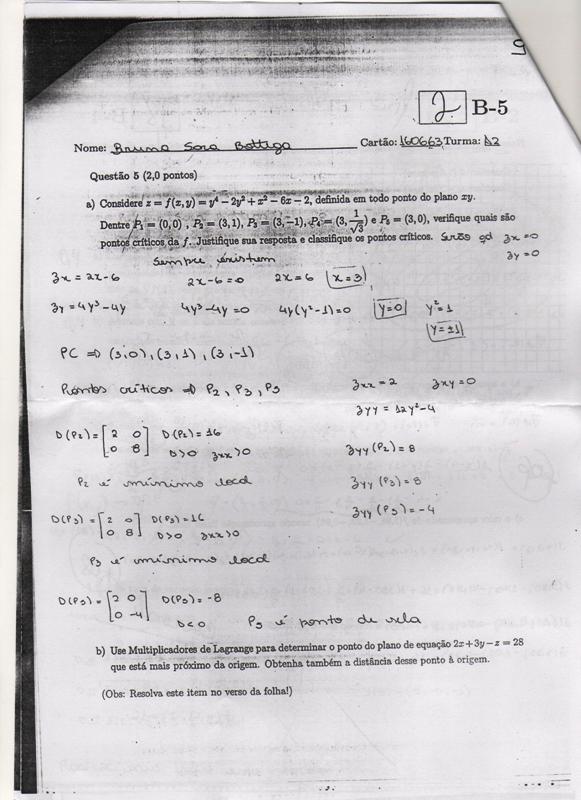 9
2 B-5
Nome: Bruna Sora Bottega Cartão: 160663 Turma: A2
Questão 5 (2,0 pontos)
a) Considere z = f(x, y) = y⁴ − 2y² + x² − 6x − 2, definida em todo ponto do plano xy.
Dentre P₁ = (0, 0) , P₂ = (3, 1), P₃ = (3, −1), P₄ = (3, 1/√3) e P₅ = (3, 0), verifique quais são
pontos críticos da f. Justifique sua resposta e classifique os pontos críticos. Serão qd zx = 0
zy = 0
sempre existem
zx = 2x - 6 2x - 6 = 0 2x = 6 x = 3
zy = 4y³ - 4y 4y³ - 4y = 0 4y(y² - 1) = 0 y = 0 y² = 1
y = ±1
PC => (3,0), (3,1), (3,-1)
Pontos críticos => P2, P3, P5 zxx = 2 zxy = 0
zyy = 12y² - 4
D(P2) = [2 0 D(P2) = 16 zyy(P2) = 8
0 8] D>0 zxx>0
P2 é mínimo local zyy(P3) = 8
D(P3) = [2 0 D(P3) = 16 zyy(P5) = -4
0 8] D>0 zxx>0
P3 é mínimo local
D(P5) = [2 0 D(P5) = -8
0 -4] D<0 P5 é ponto de sela
b) Use Multiplicadores de Lagrange para determinar o ponto do plano de equação 2x + 3y − z = 28
que está mais próximo da origem. Obtenha também a distância desse ponto à origem.
(Obs: Resolva este item no verso da folha!)